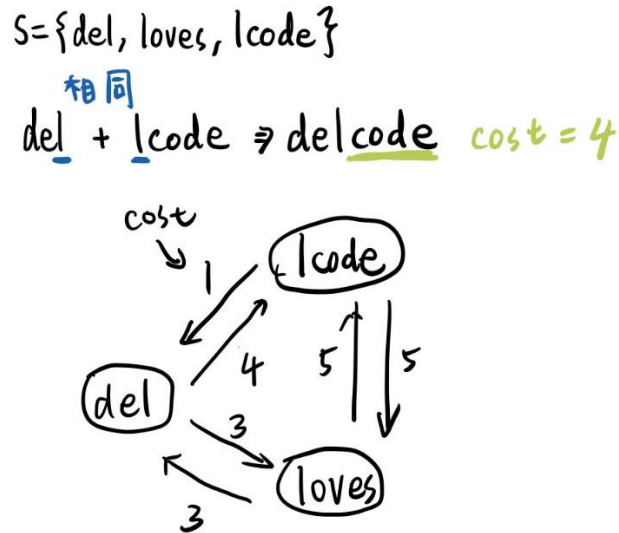 S={del, loves, lcode}
相同
del + lcode ⇒ delcode cost = 4
cost
1
lcode
4
5
5
del
3
loves
3